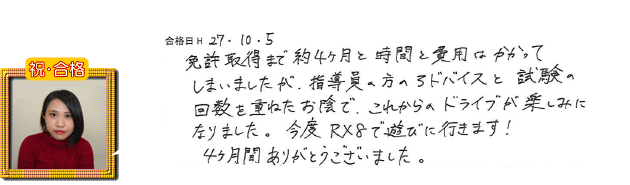 祝・合格
合格日 H 27・10・5
免許取得まで約4ヶ月と時間と費用はかかって
しまいましたが、指導員の方のアドバイスと試験の
回数を重ねたお陰で、これからのドライブが楽しみに
なりました。今度RX8で遊びに行きます！
4ヶ月間ありがとうございました。